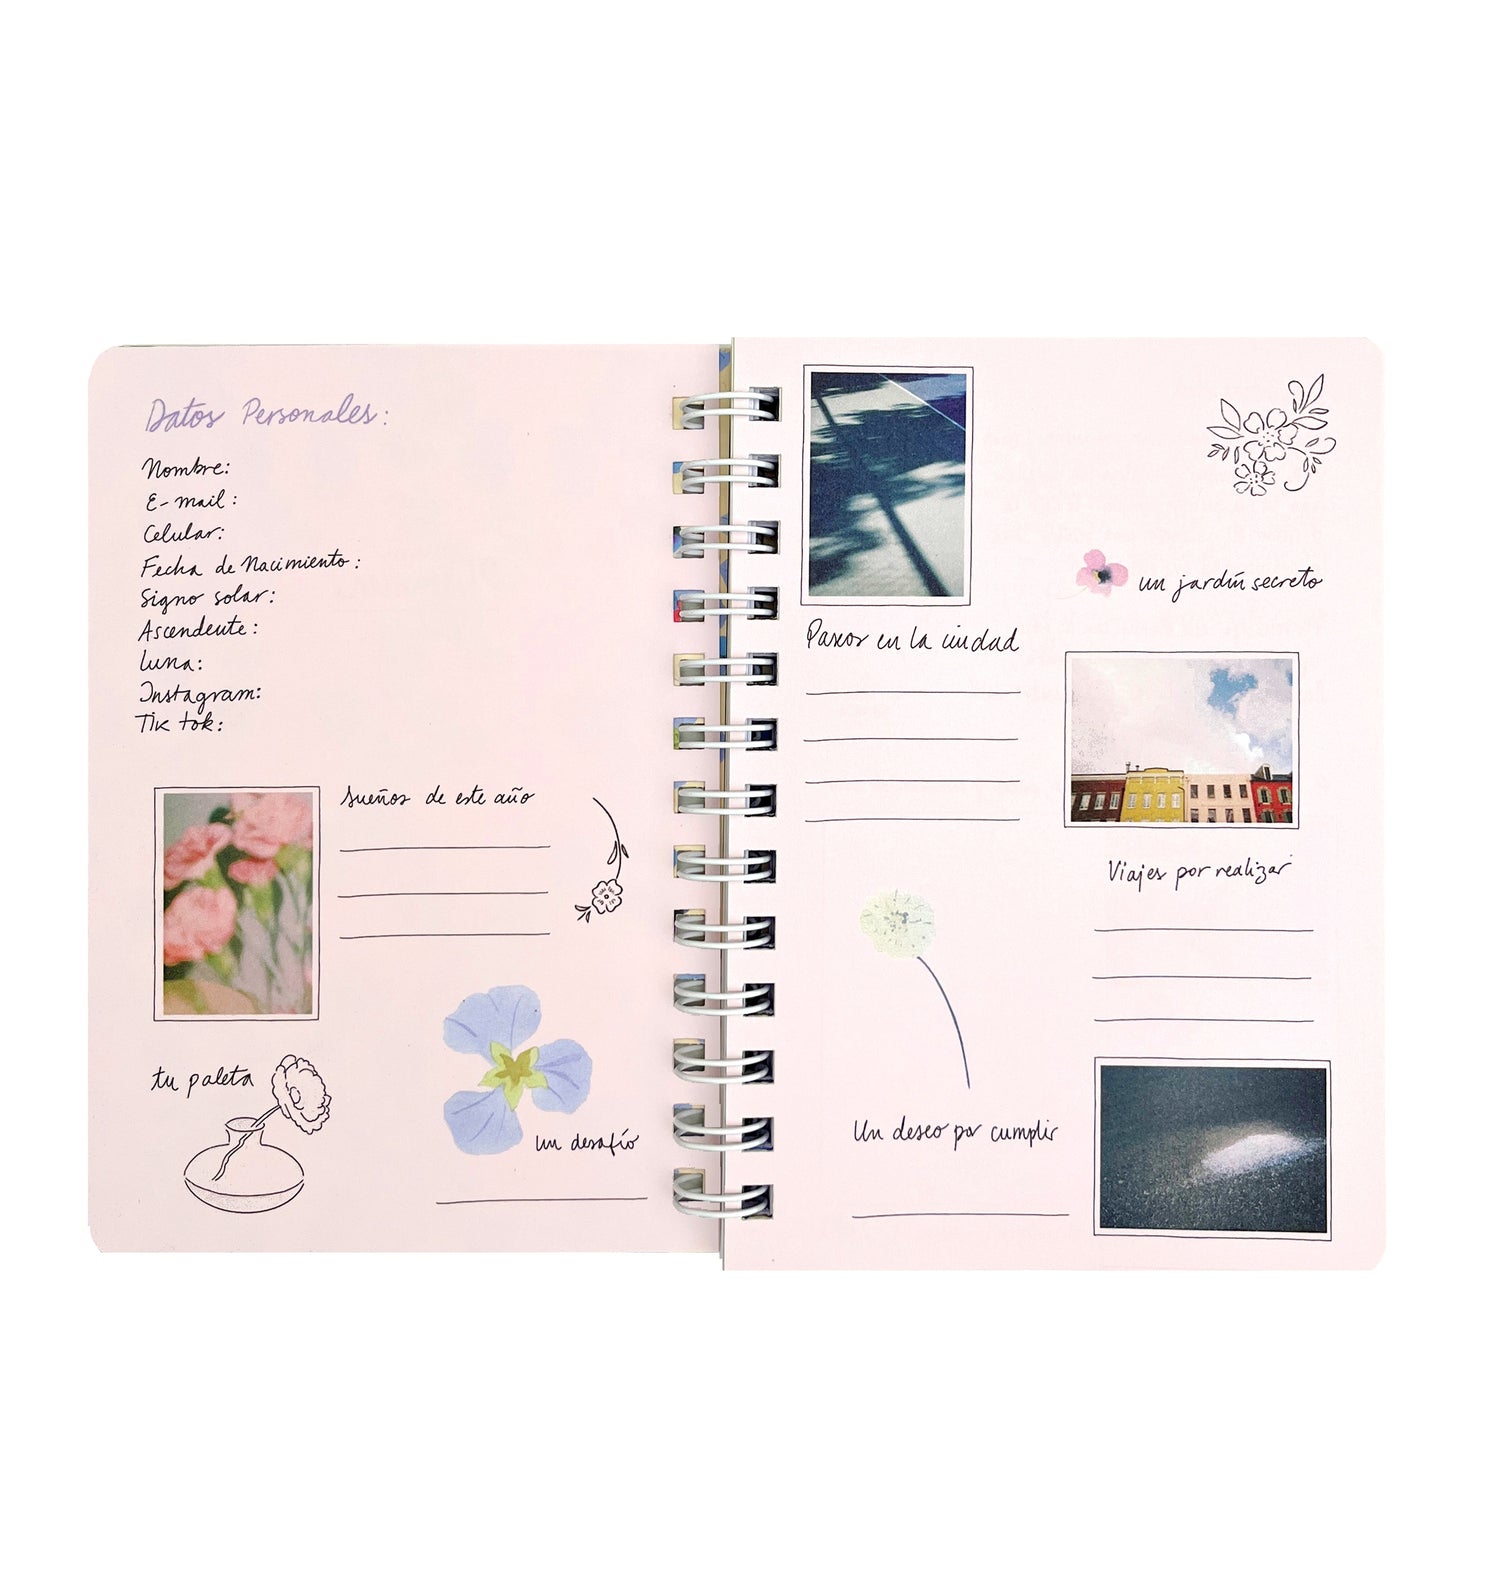 Datos Personales:
Nombre:
E-mail:
Celular:
Fecha de Nacimiento:
Signo solar:
Ascendente:
Luna:
Instagram:
Tik tok:
Sueños de este año
tu paleta
un desafío
Paseos en la ciudad
un jardín secreto
Viajes por realizar
Un deseo por cumplir